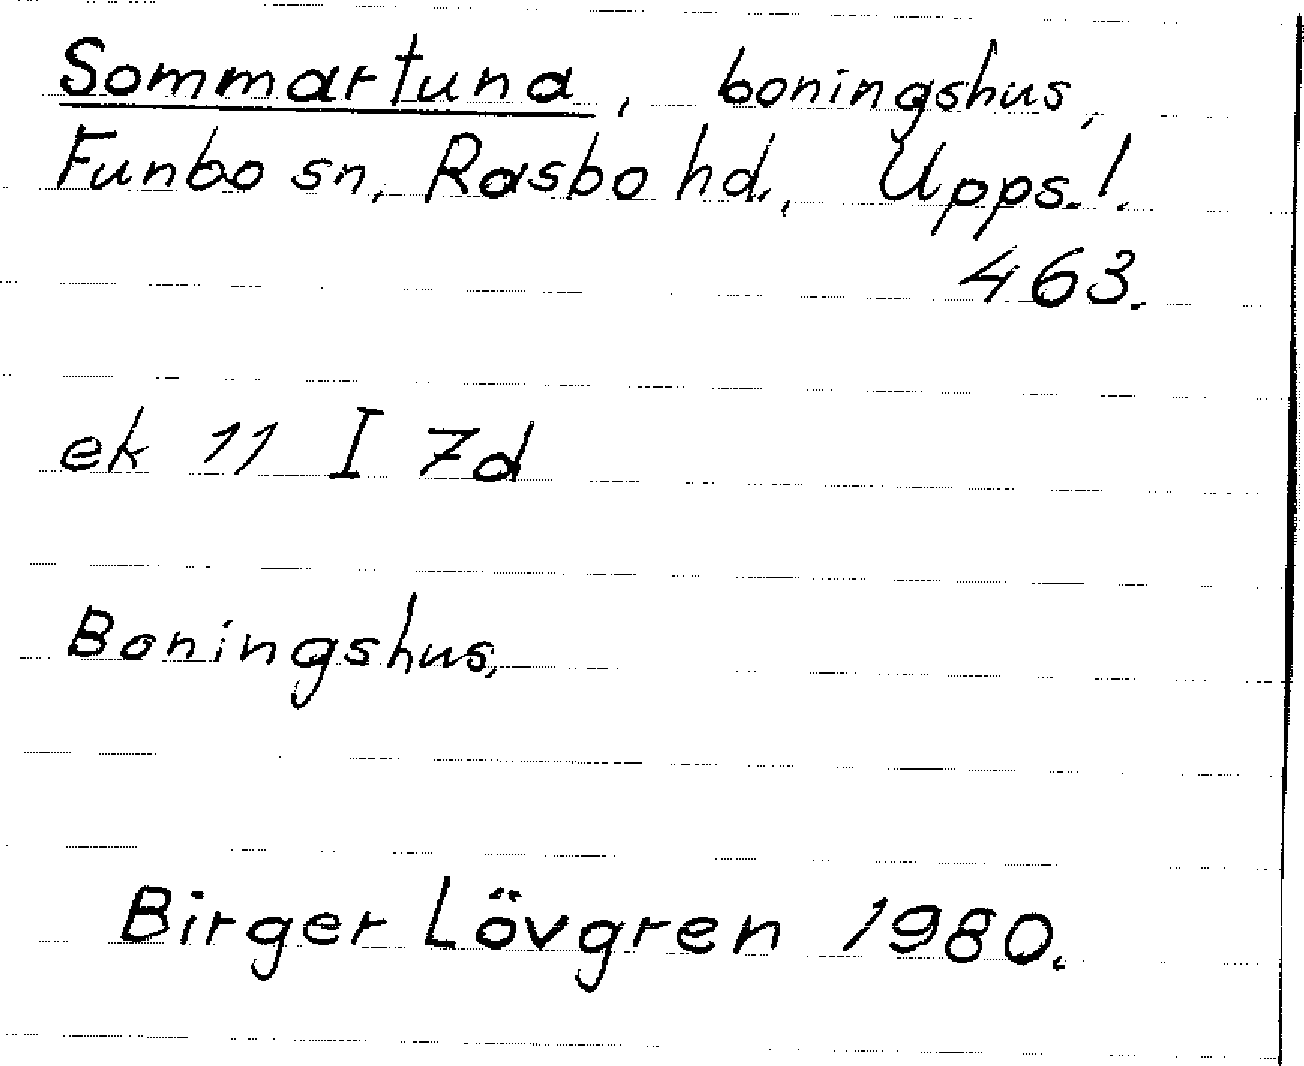 Sommartuna, boningshus,
Funbo sn, Rasbo hd., Upps. l.
463.
ek 11 I 7d
Boningshus,
Birger Lövgren 1980.